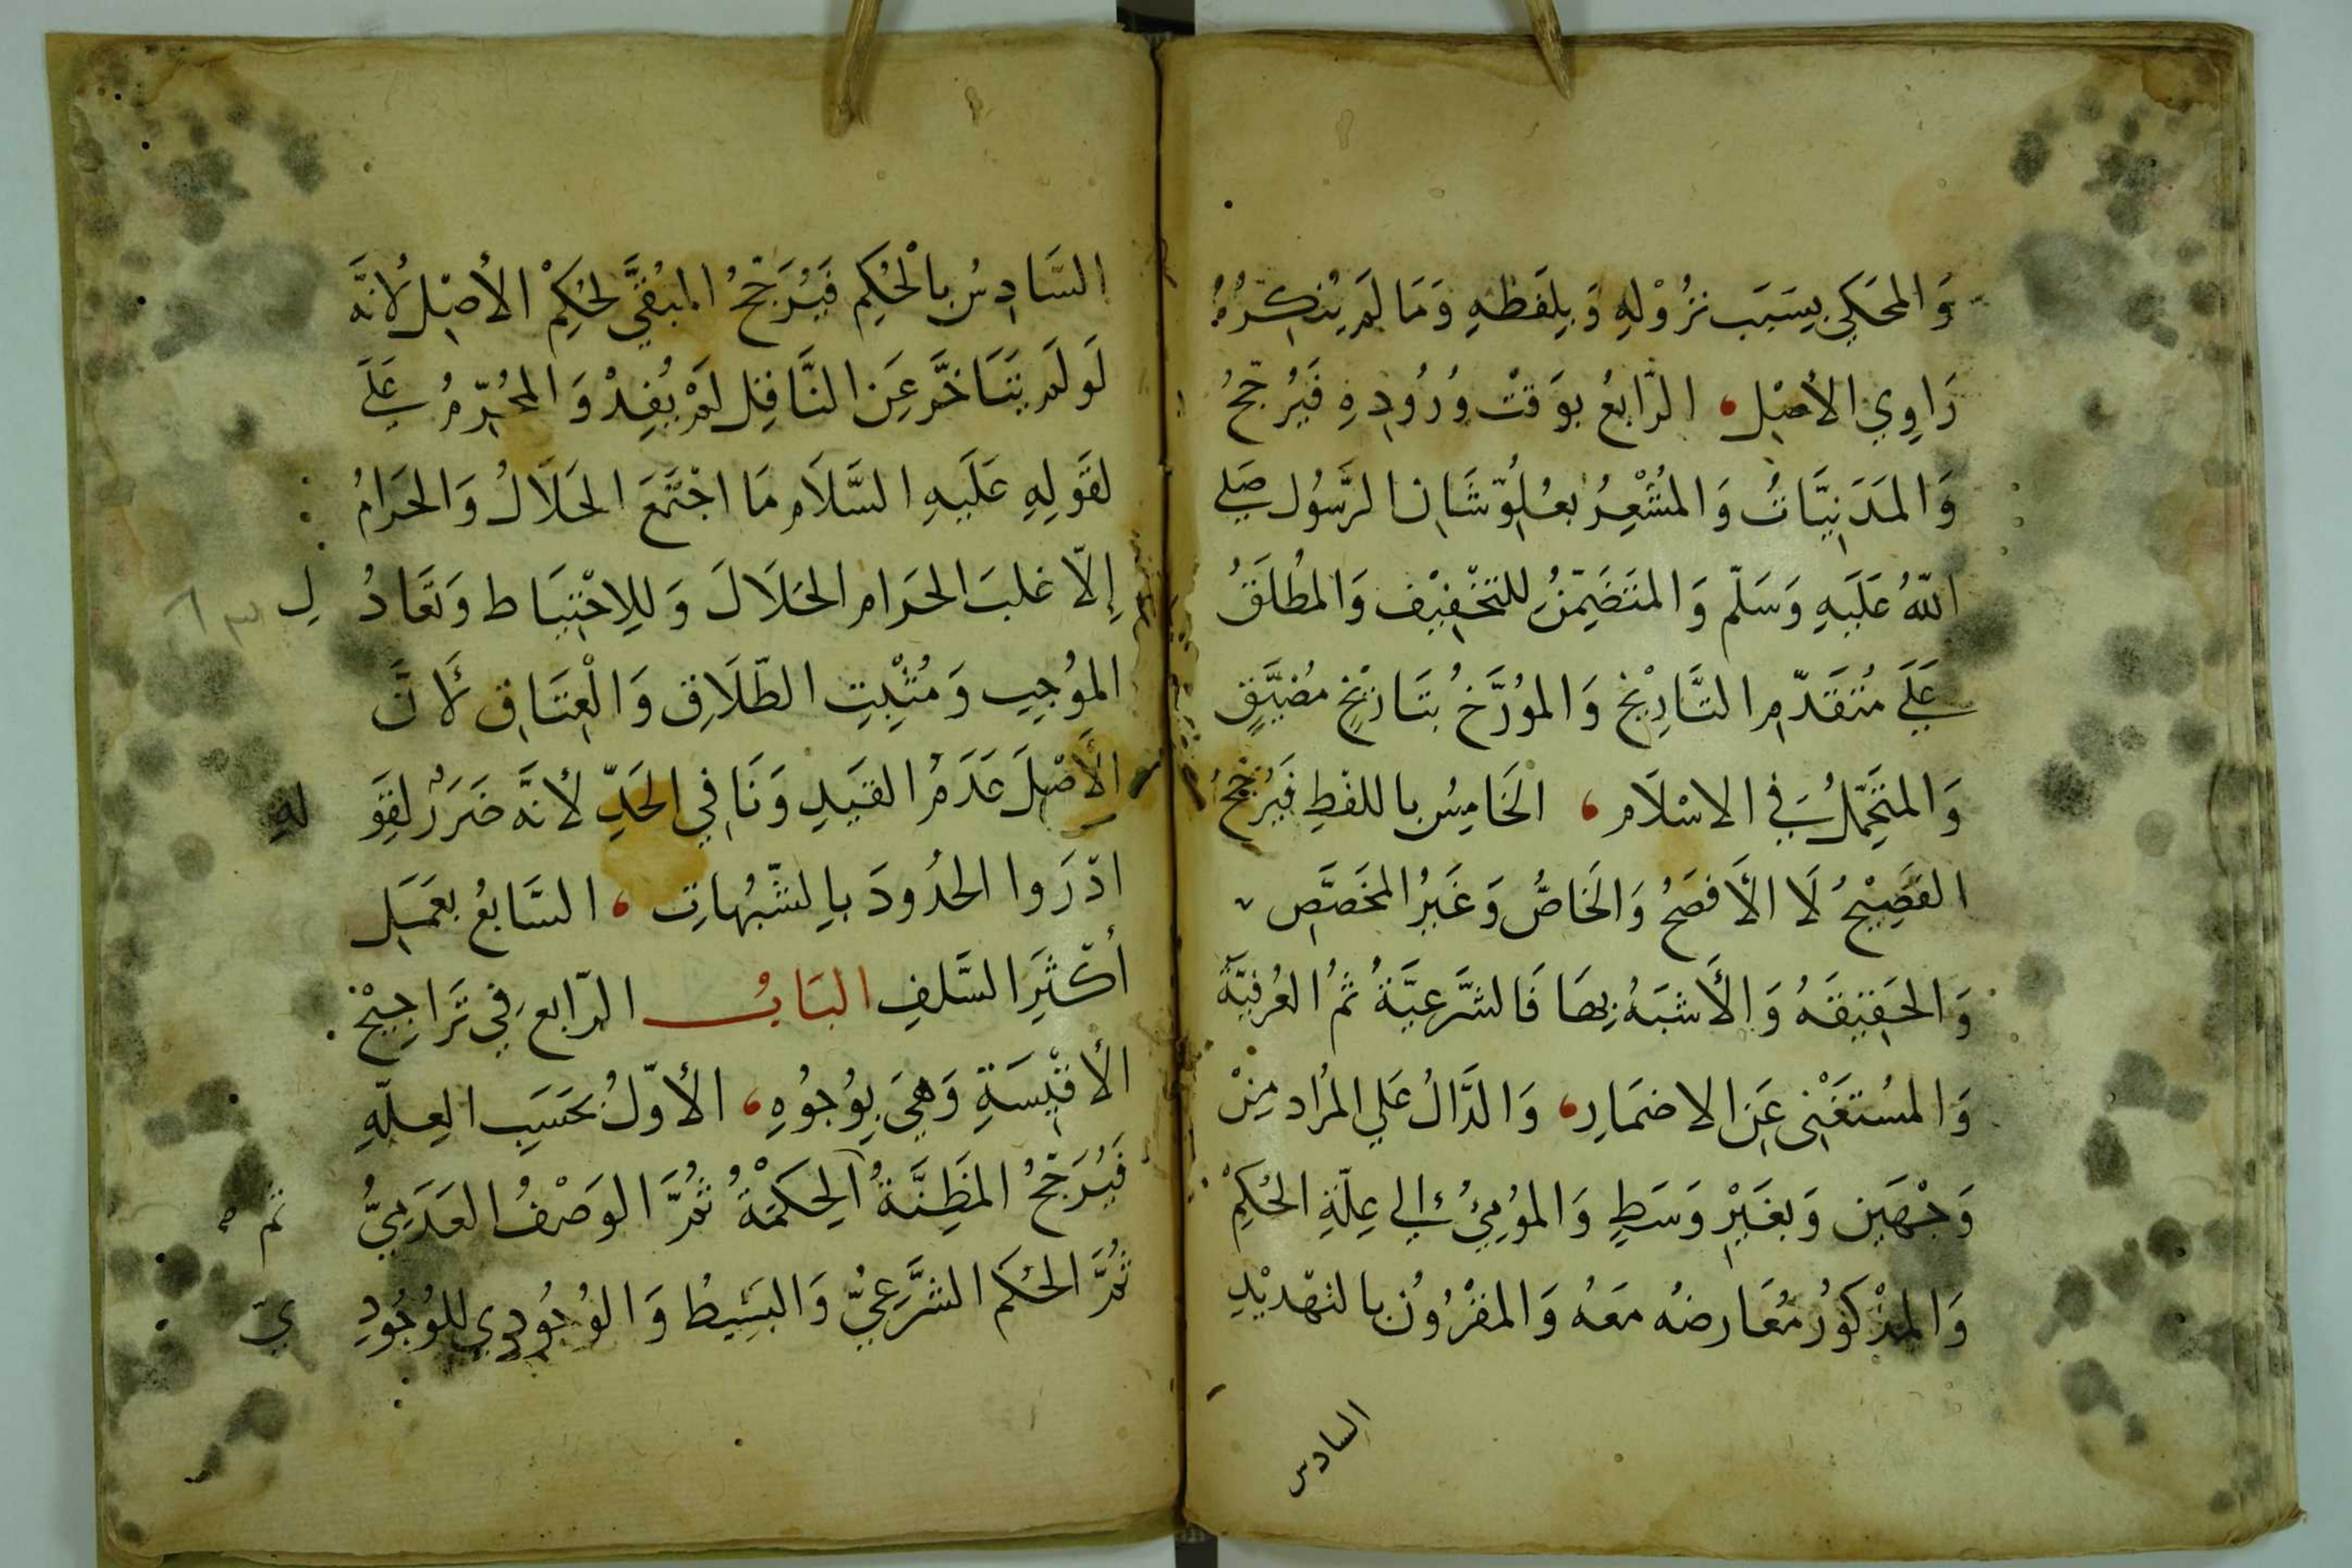 وَالمَحَكي بِسَبَب نزُوْلهِ وَبِلَفظهِ وَمَا لَم يُنكِرْهُ
رَاوِي الأصْل، الرّابعُ بوَقتْ وُرُودِهِ فَيُرَجَّحُ
وَالمَدَنِيَّاتُ وَالمُشْعِرُ بعُلُوّ شَان الرَّسُول صَلي
اللهُ عَلَيهِ وَسَلّم وَالمتَضَمِّنُ للتخْفِيْف وَالمُطلَقُ
عَلَي مُتَقَدّمِ التَّاريْخ وَالمؤرَّخُ بتَاريْخٍ مُضَيَّقٍ
وَالمتَحَمّلُ في الاسْلَام، الخَامِسُ باللفظِ فَيُرَجَّحُ
الفَصِيْحُ لَا الأَفصَحُ وَالخَاصُّ وَغَيرُ المخَصَّصِ
وَالحَقِيقَهُ وَالأَشبَهُ بِهَا فَالشَّرعِيَّةُ ثمُ العُرفِيّةُ
وَالمسُتَغْنِى عَنِ الاضمَارِ، وَالدَّالُ عَلي المُرَاد مِنْ
وَجْهَينِ وَبغَيْرِ وَسَطٍ وَالموُمِيُ إلي عِلّةِ الحُكِمْ
وَالمذْكوُرُ مُعَارضُه مَعَهُ وَالمقْرُوُنُ بالتهّديْدِ
السادس
السَّادِسُ بالْحُكِم فَيُرَجّحُ المُبْقَّي لحُكِمْ الأصْل لأنَّه
لَو لَم يَتَاخَّر عَنِ النَّاقِل لَمْ يُفِدْ وَالمحُرّمُ عَلَي
لقَولِهِ عَلَيهِ السَّلَام مَا اجْتَمَعَ الحَلَالُ وَالحَرَامُ
إلاّ غلبَ الحَرَام الحَلَالَ وَللِاحْتِيَاط وَتعَادُ لِ
الموُجِبِ وَمُثْبِتِ الطّلَاق وَالْعِتَاق لأَنَّ
الأَصْلَ عَدَمُ القَيدِ وَنَافي الحَدِّ لأنَّه ضَرَرٌ لقَوَ لهِ
ادْرَوا الحدُودَ بالشّبُهاتِ، السَّابعُ بعَمَل
أكثَرِ السَّلفِ البَابُ الرّابع في تَرَاجِيْح
الأقيْسَةِ وَهِيَ بِوُجُوُهٍ، الأوّلُ بحَسَبِ العِلّهِ
فَيُرَجّحُ المَظِنَّةُ الحِكمْةُ ثمَّ الوَصْفُ العَدَمِيُّ ثم
ثمَّ الحُكم الشَّرعِيُّ وَالبَسِيطُ وَالوُجُودِي للوُجُودِ يّ